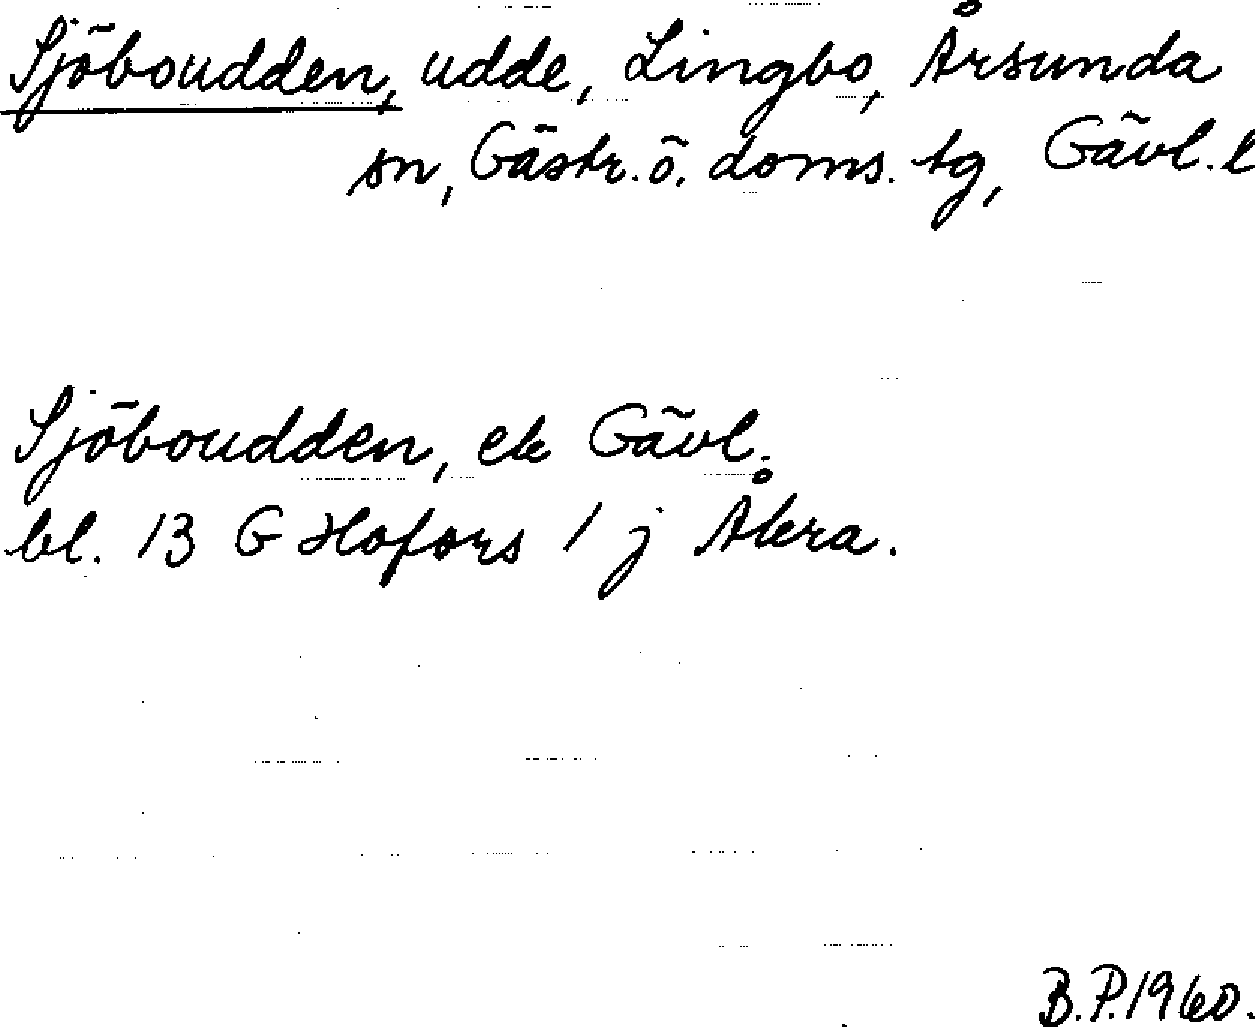 Sjöboudden, udde, Lingbo, Årsunda
sn, Gästr. ö. doms. tg, Gävl. l
Sjöboudden, ek Gävl.
bl. 13 G Hofors 1 j Åkra.
B.P. 1960.